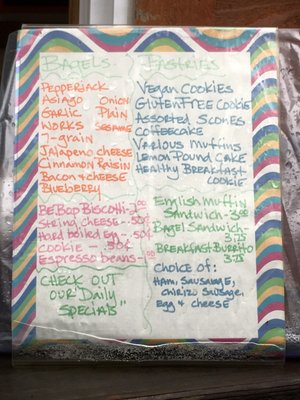 Bagels
Pepperjack
Asiago Onion
Garlic Plain
Works Sesame
7-grain
Jalapeno Cheese
Cinnamon Raisin
Bacon & Cheese
Blueberry
BeBop Biscotti-1.00
String Cheese-.50¢
Hard boiled Egg-.50¢
Cookie - .50¢
Espresso beans-
Check out
our Daily
Specials"
Pastries
Vegan Cookies
Gluten Free Cookie
Assorted Scones
Coffeecake
Various Muffins
Lemon Pound Cake
Healthy Breakfast
Cookie
English Muffin
Sandwich-3.00
Bagel Sandwich
3.75
Breakfast Burrito
3.75
Choice of:
Ham, Sausauge,
Chirizo Sausage,
Egg & Cheese